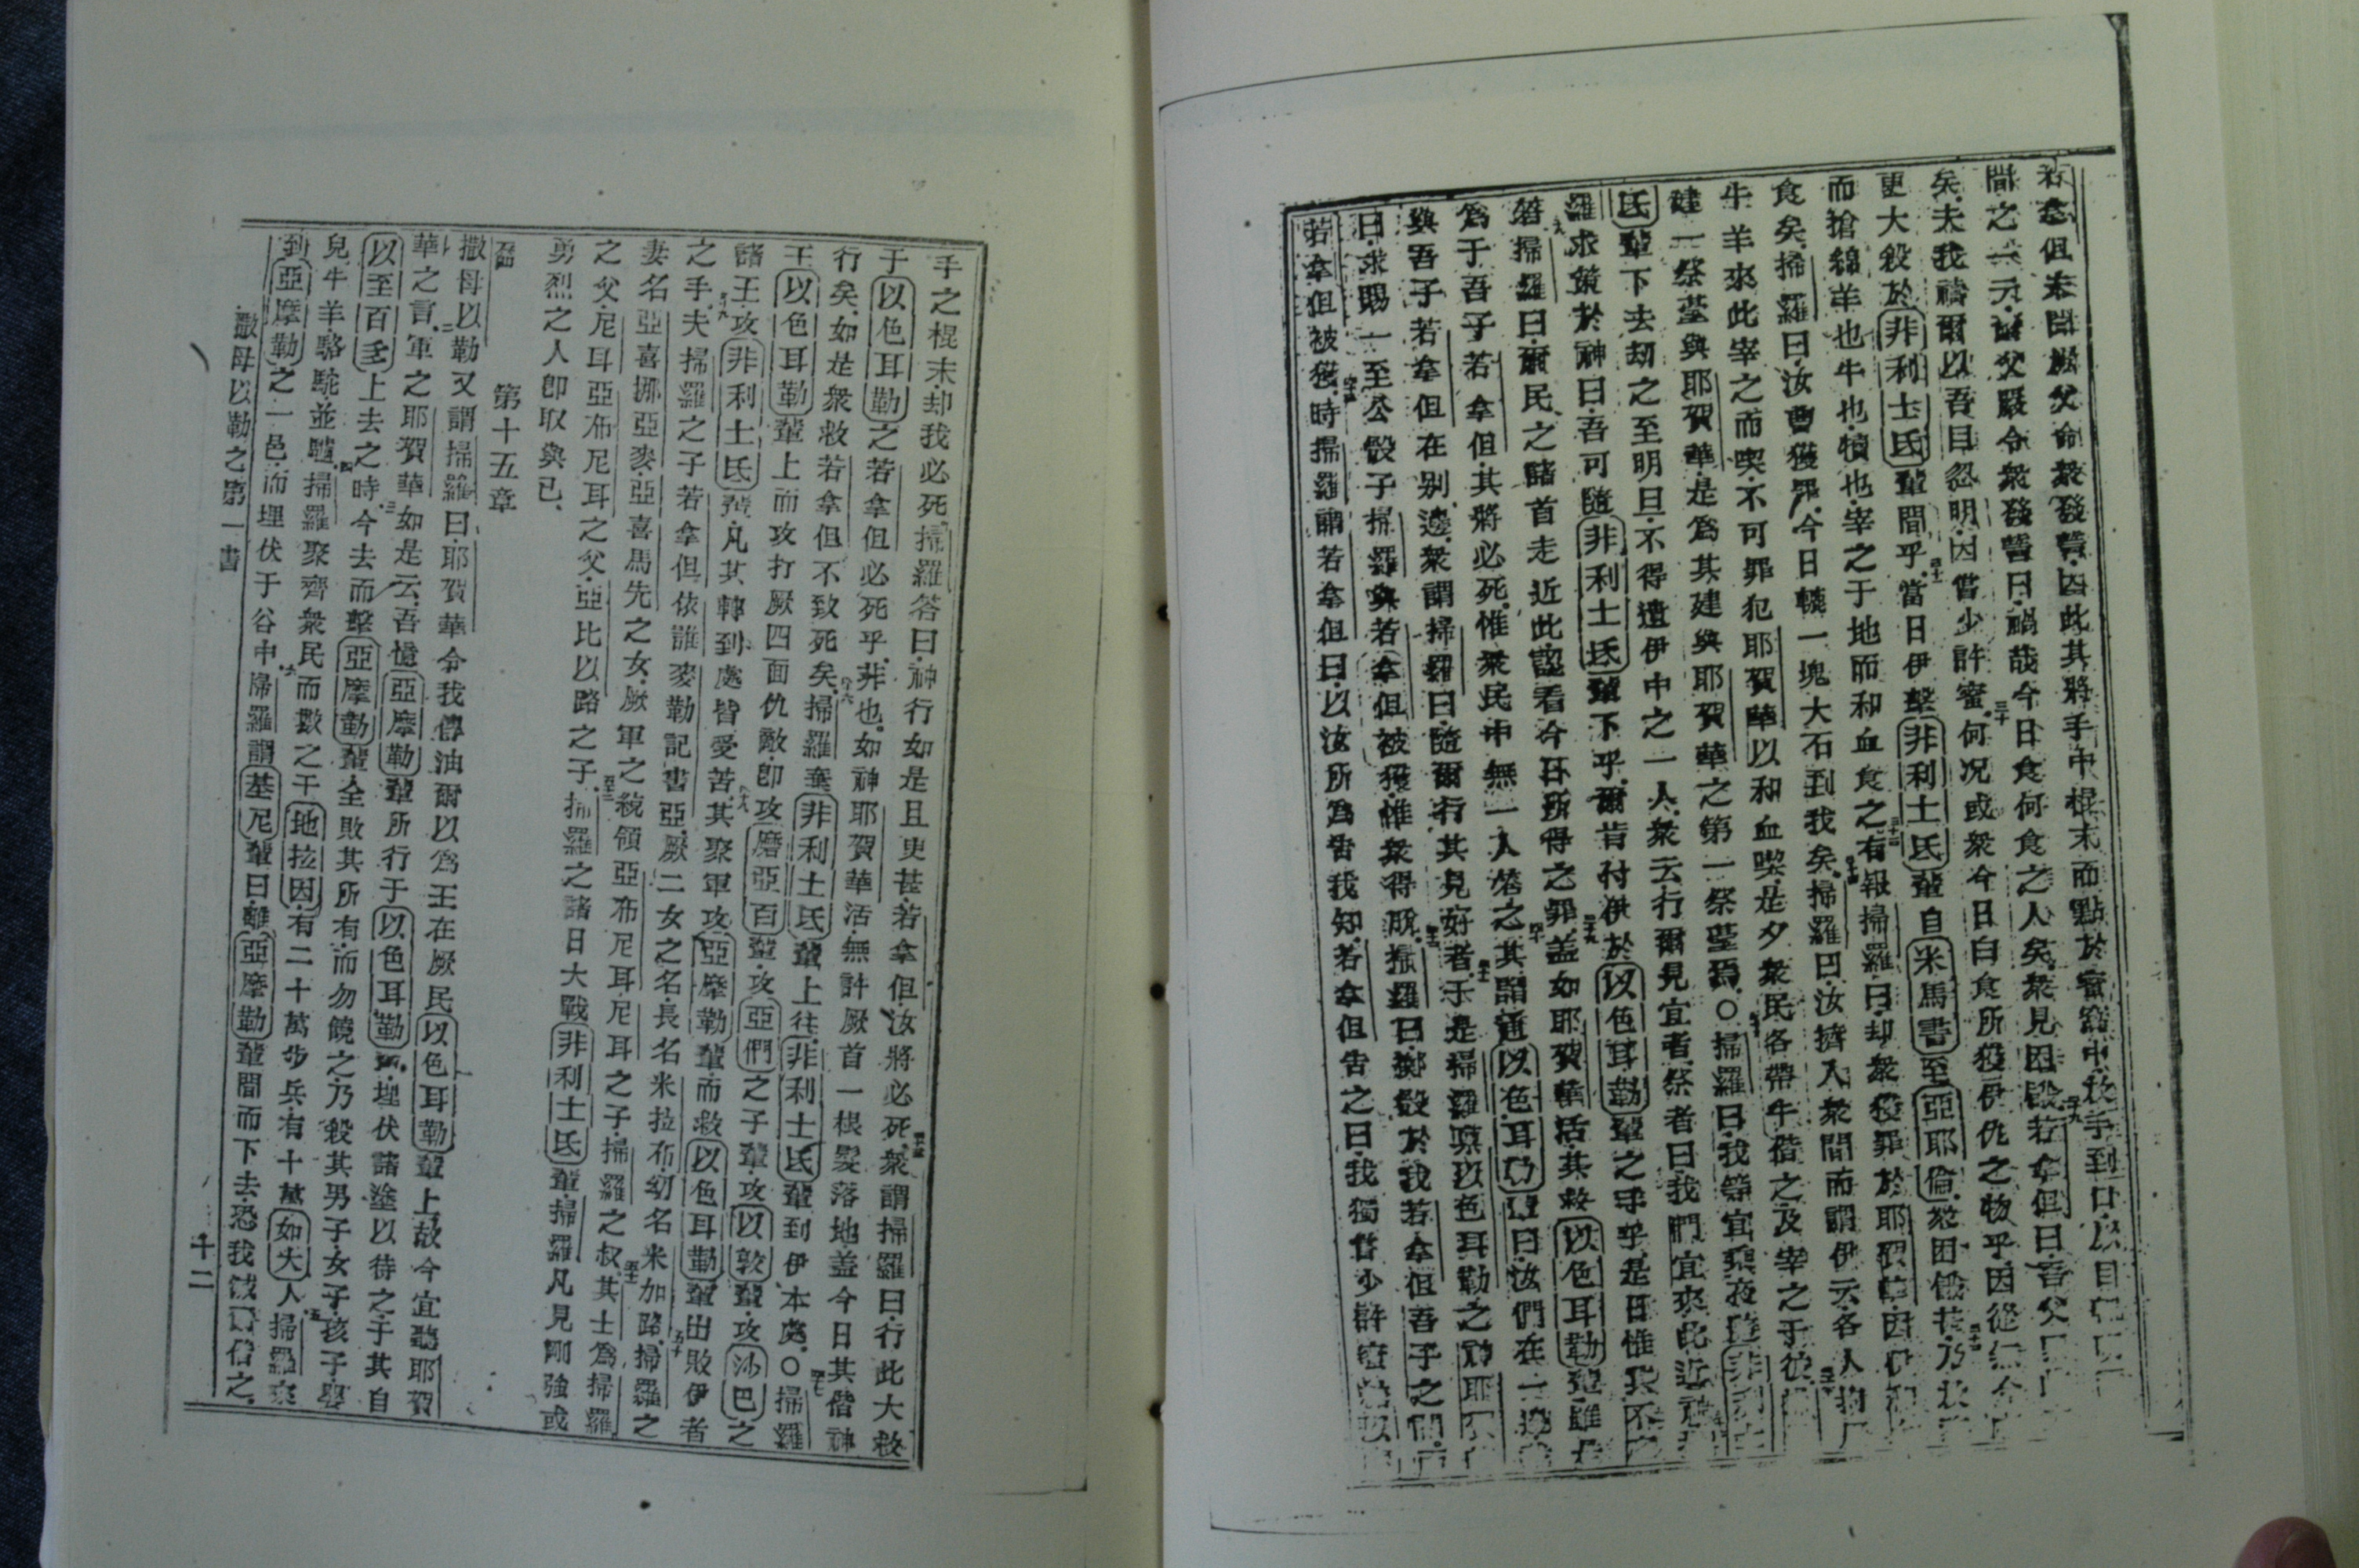 若拿但未聞厥父命衆發誓因此其將手中棍末而點於蜜窩中收手到口
爾父嚴令衆發誓曰禍哉今日食何食之人矣衆見困若拿但曰吾父
矣夫我禱爾以吾目忽明因嘗少許蜜何况或衆今日自食所獲伊仇之物乎因從
更大殺於非利士氏輩間乎當日伊擊非利士氏輩自米馬書至亞耶倫衆困
而搶綿羊也牛也犢也宰之于地而和血食之有報掃羅曰却衆獲罪於耶賀華因伊
食矣掃羅曰汝曹獲罪今日轆一塊大石到我矣掃羅曰汝擠入衆間而謂伊云各人
牛羊來此宰之而喫不可罪犯耶賀華以和血喫是夕衆民各帶牛偕之及宰之于彼
建一祭臺與耶賀華是爲其建與耶賀華之第一祭臺焉○掃羅曰我等宜乘夜隨非利士
氏輩下去刼之至明旦不得遺伊中之一人衆云行爾見宜者祭者曰我們宜來此近神
羅求策於神曰吾可隨非利士氏輩下乎爾肯付伊於以色耳勒輩之手乎是日惟其不
答掃羅曰爾民之諸首走近此認看今日所得之罪蓋如耶賀華活其救以色耳勒輩雖
爲于吾子若拿但其將必死惟衆民中無一人答之其謂通以色耳勒輩曰汝們在一邊
與吾子若拿但在別邊衆謂掃羅曰隨爾行其見好者于是掃羅禀以色耳勒之神耶
曰求賜一至公骰子掃羅與若拿但被獲惟衆得脫掃羅曰擲骰於我若拿但吾子之間
若拿但被獲時掃羅謂若拿但曰以汝所爲告我知若拿但告之曰我獨甞少許蜜
手之棍末却我必死掃羅答曰神行如是且更甚若拿但汝將必死衆謂掃羅曰行此大救
于以色耳勒之若拿但必死乎非也如神耶賀華活無許厥首一根髮落地蓋今日其偕神
行矣如是衆救若拿但不致死矣掃羅棄非利士氏輩上往非利士氏輩到伊本處○掃羅
王以色耳勒輩上而攻打厥四面仇敵即攻磨亞百輩攻亞們之子輩攻以敦輩攻沙巴之
諸王攻非利士氏輩凡其轉到處皆受苦其聚軍攻亞摩勒輩而救以色耳勒輩出敗伊者
之手夫掃羅之子若拿但依誰麥勒記書亞厥二女之名長名米拉布幼名米加路掃羅之
妻名亞喜挪亞麥亞喜馬先之女厥軍之統領亞布尼耳尼耳之子掃羅之叔其士爲掃羅
之父尼耳亞布尼耳之父亞比以路之子掃羅之諸日大戰非利士氏輩掃羅凡見剛強或
勇烈之人即取與己
第十五章
撒母以勒又謂掃羅曰耶賀華令我傅油爾以爲王在厥民以色耳勒輩上故今宜聽耶賀
華之言軍之耶賀華如是云吾憶亞摩勒輩所行于以色耳勒輩埋伏諸塗以待之于其自
以至百多上去之時今去而擊亞摩勒輩全敗其所有而勿饒之乃殺其男子女子孩子嬰
兒牛羊駱駝並驢掃羅聚齊衆民而數之于地拉因有二十萬步兵有十萬如大人掃羅來
到亞摩勒之一邑而埋伏于谷中掃羅謂基尼輩曰離亞摩勒輩間而下去恐我滅爾偕之
撒母以勒之第一書
十二